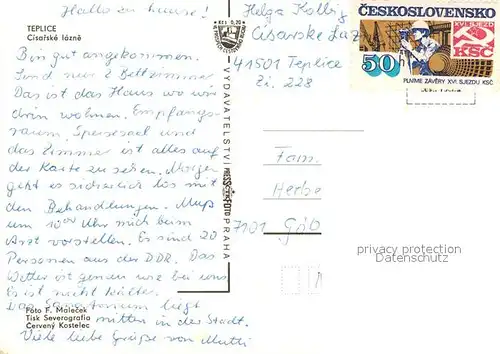 Hallo zu hause!
TEPLICE
Císařské lázně
Bin gut angekommen.
Sind nur 2 Bettzimmer
Das ist das Haus wo wir
drin wohnen. Empfangs-
raum, Speisesaal und
das Zimmer ist alles auf
der Karte zu sehen. Morgen
geht es sicherlich los mit
den Behandlungen. Muß
um 10 Uhr mich beim
Arzt vorstellen. Es sind 20
Personen aus der DDR. Das
Wetter ist genau wie bei uns
Es ist nicht kälter.
Das Sanatorium liegt
mitten in der Stadt.
Viele liebe Grüße von Mutti
Foto F. Maleček
Tisk Severografia
Červený Kostelec
Kčs 0,70
VYDAVATELSTVÍ PRESSFOTO PRAHA
Helga Kolbig
Cisarske Laz
41501 Teplice
Zi. 228
ČESKOSLOVENSKO
XVI. SJEZD
KSČ
50 h
PLNÍME ZÁVĚRY XVI. SJEZDU KSČ
Fam.
Herbe
7101 Göb
privacy protection
Datenschutz